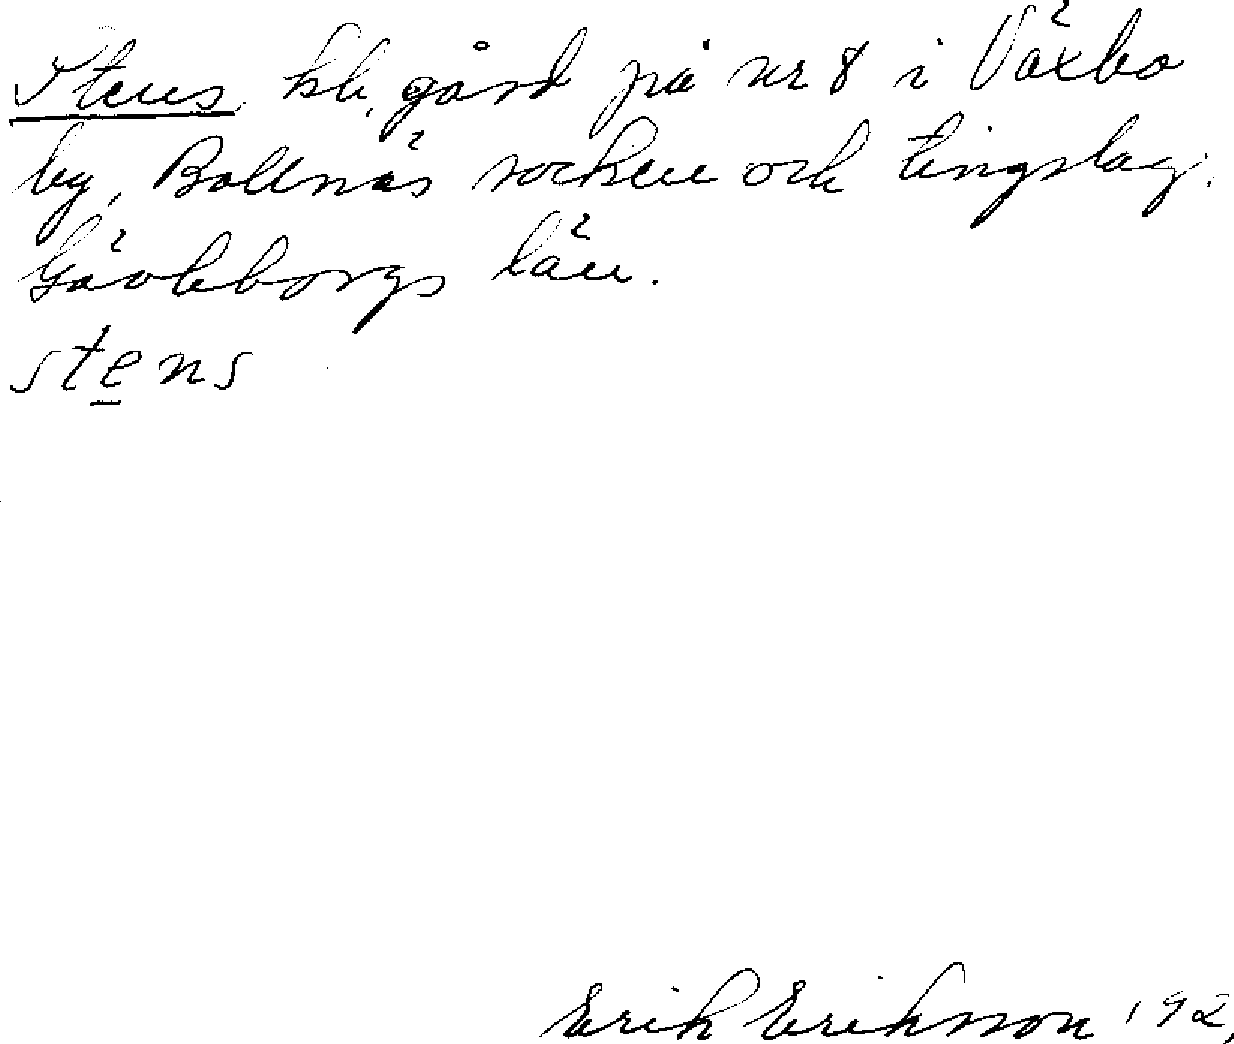 Stens, kb, gård på nr 8 i Växbo
by, Bollnäs socken och tingslag.
Gävleborgs län.
stens
Erik Eriksson 192